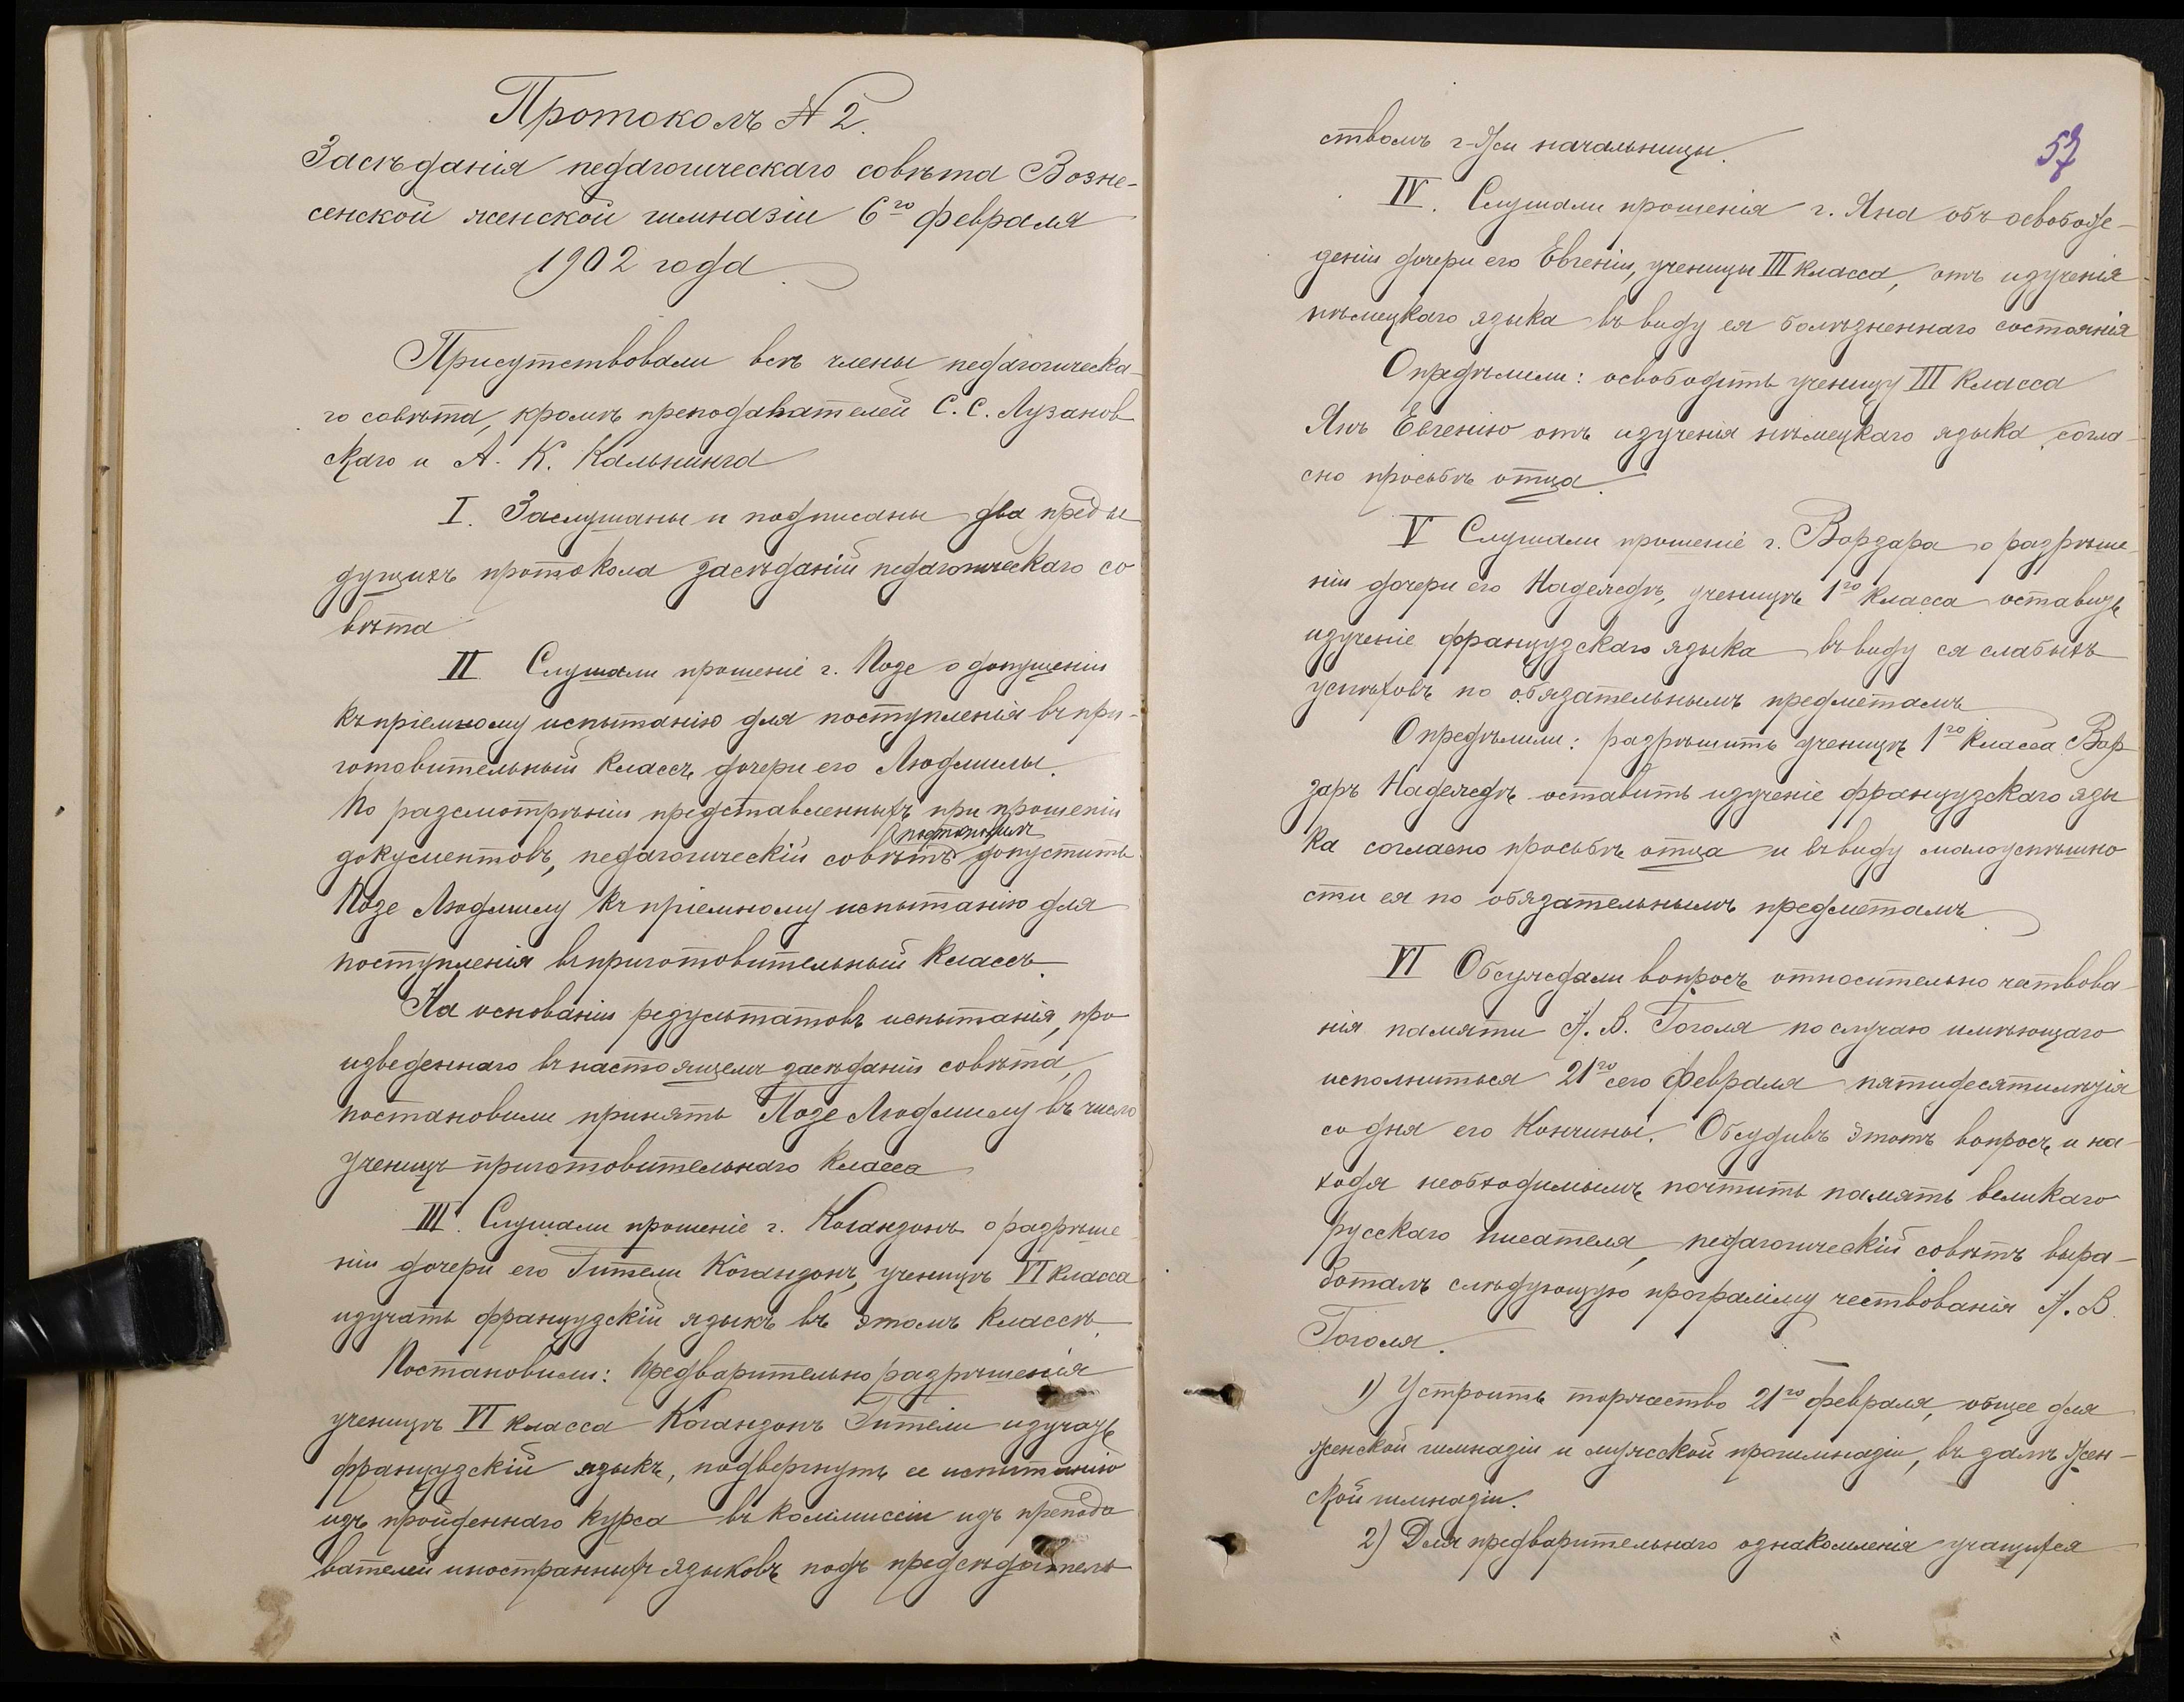 Протоколъ № 2.
Засѣданія педагогическаго совѣта Возне-
сенской женской гимназіи 6го февраля
1902 года.
Присутствовали всѣ члены педагогическа-
го совѣта, кромѣ преподавателей С. С. Лузанов
скаго и А. К. Кальнинга
I. Заслушаны и подписаны два преды
дущихъ протокола засѣданій педагогическаго со
вѣта
II Слушали прошеніе г. Позе о допущеніи
къ пріемному испытанію для поступленія въ при-
готовительный классъ дочери его Людмилы.
По разсмотрѣніи представленныхъ при прошеніи
постановилъ
документовъ, педагогическій совѣтъ допустить
Позе Людмилу къ пріемному испытанію для
поступленія въ приготовительный классъ.
На основаніи результатовъ испытанія, про
изведеннаго въ настоящемъ засѣданіи совѣта,
постановили принять Позе Людмилу въ число
ученицъ приготовительнаго класса
III. Слушали прошеніе г. Когандонъ о разрѣше
ніи дочери его Гители Когандонъ, ученицѣ VI класса
изучать французскій языкъ въ этомъ классѣ.
Постановили: предварительно разрѣшенія
ученицѣ VI класса Когандонъ Гители изучать
французскій языкъ, подвергнуть ее испытанію
изъ пройденнаго курса въ коммиссіи изъ препода
вателей иностранныхъ языковъ подъ предсѣдатель
57
ствомъ г-жи начальницы.
IV. Слушали прошенія г. Яна объ освобож-
деніи дочери его Евгеніи, ученицы III класса, отъ изученія
нѣмецкаго языка въ виду ея болѣзненнаго состоянія
Опредѣлили: освободить ученицу III класса
Янъ Евгенію отъ изученія нѣмецкаго языка, согла-
сно просьбѣ отца.
V Слушали прошеніе г. Варзара о разрѣше
ніи дочери его Надеждѣ, ученицѣ 1го класса оставить
изученіе французскаго языка въ виду ея слабыхъ
успѣховъ по обязательнымъ предметамъ
Опредѣлили: разрѣшить ученицѣ 1го класса Вар
заръ Надеждѣ оставить изученіе французскаго язы
ка согласно просьбѣ отца и въ виду малоуспѣшно
сти ея по обязательнымъ предметамъ
VI Обсуждали вопросъ относительно чествова
нія памяти Н. В. Гоголя по случаю имѣющаго
исполниться 21го сего февраля пятидесятилѣтія
со дня его кончины. Обсудивъ этотъ вопросъ и на
ходя необходимымъ почтить память великаго
русскаго писателя, педагогическій совѣтъ выра-
боталъ слѣдующую программу чествованія Н. В.
Гоголя.
1) Устроить торжество 21го февраля, общее для
женской гимназіи и мужской прогимназіи, въ залѣ жен-
ской гимназіи.
2) Для предварительнаго ознакомленія учащихся